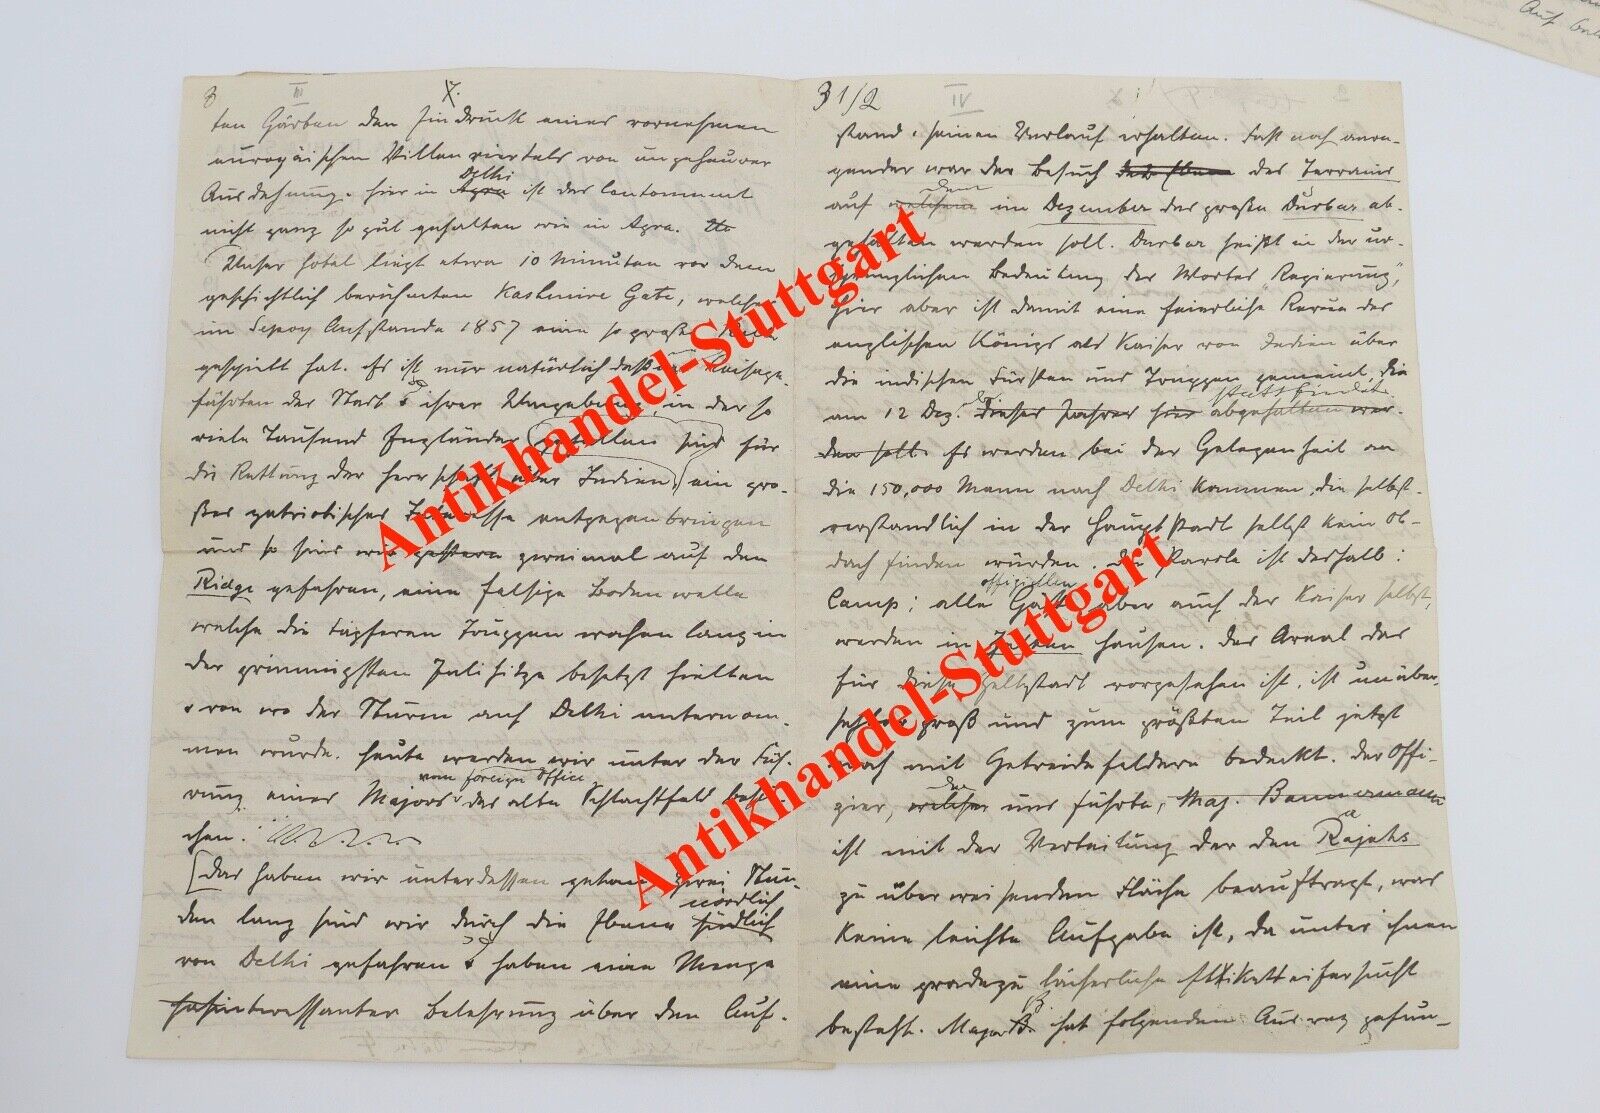 Auf
3 III X.
ten Gärten den Eindruck eines vornehmen
europäischen Villenviertels von ungeheurer
Delhi
Ausdehnung. Hier in Agra ist das Cantonment
nicht ganz so gut gehalten wie in Agra.
Unser Hotel liegt etwa 10 Minuten vor dem
geschichtlich berühmten Kashmire Gate, welches
im Sepoy Aufstande 1857 eine so große Rolle
gespielt hat. Es ist nur natürlich daß
führten der Stadt & ihrer Umgebung, in der so
viele Tausend Engländer gefallen sind für
die Rettung der Herrschaft über Indien, ein gro-
ßes patriotisches Interesse entgegenbringen
und so sind wir gestern zweimal auf den
Ridge gefahren, eine felsige Bodenwelle
welche die tapferen Truppen wochenlang in
der grimmigsten Julihitze besetzt hielten
& von wo der Sturm auf Delhi unternom-
men wurde. Heute werden wir unter der Füh-
vom foreign Office
rung eines Majors das alte Schlachtfeld besu-
chen.
Das haben wir unterdessen getan zwei Stun-
nördlich
den lang sind wir durch die Ebene südlich
von Delhi gefahren & haben eine Menge
interessanter Belehrung über den Auf-
3 1/2 IV
stand & seinen Verlauf erhalten. Fast noch anre-
gender war der Besuch des Terrains
dem
auf welchem im Dezember das große Durbar ab-
gehalten werden soll. Durbar heißt in der ur-
sprünglichen Bedeutung des Wortes "Regierung",
hier aber ist damit eine feierliche Revue des
englischen Königs als Kaiser von Indien über
die indischen Fürsten und Truppen gemeint, die
stattfindet
am 12 Dez. dieses Jahres hier abgehalten wer-
den soll. Es werden bei der Gelegenheit an
die 150,000 Mann nach Delhi kommen, die selbst-
verständlich in der Hauptstadt selbst kein Ob-
dach finden würden. Die Parole ist deshalb:
offiziellen
Camp; alle Gäste, aber auch der Kaiser selbst,
werden in Zelten hausen. Das Areal das
für diese Zeltstadt vorgesehen ist, ist unüber-
sehbar groß und zum größten Teil jetzt
noch mit Getreidefeldern bedeckt. Der Offi-
der
zier, welcher uns führte, Maj.
ist mit der Verteilung der den Rajahs
zu überweisenden Fläche beauftragt, was
keine leichte Aufgabe ist, da unter ihnen
eine gradezu lächerliche Etiketteifersucht
besteht. Major B. hat folgenden Ausweg gefun-
Antikhandel-Stuttgart
Antikhandel-Stuttgart